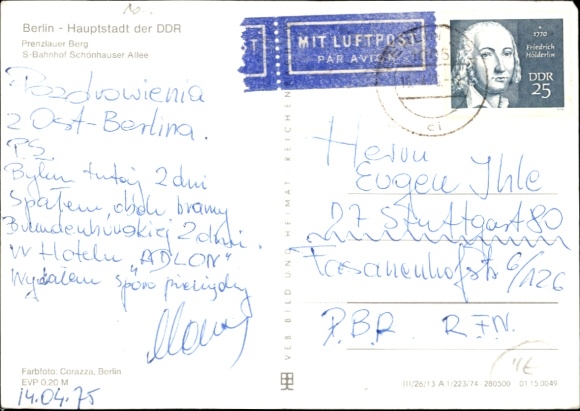 Berlin - Hauptstadt der DDR
Prenzlauer Berg
S-Bahnhof Schönhauser Allee
MIT LUFTPOST
PAR AVION
1770
Friedrich
Hölderlin
DDR
25
Pozdrowienia
z Ost-Berlina.
P.S.
Byłem tutaj 2 dni
Spałem obok bramy
Brandenburskiej 2 dni.
W Hotelu "ADLON"
Wydałem sporo pieniędzy
Herrn
Eugen Ihle
27 Stuttgart 80
Fasanenhofstr 6/126
P.B.R. R.F.N.
VEB BILD UND HEIMAT REICHENBACH
Farbfoto: Corazza, Berlin
EVP 0,20 M
14.04.75
III/26/13 A 1/223/74 280500 01 15 0049
1€